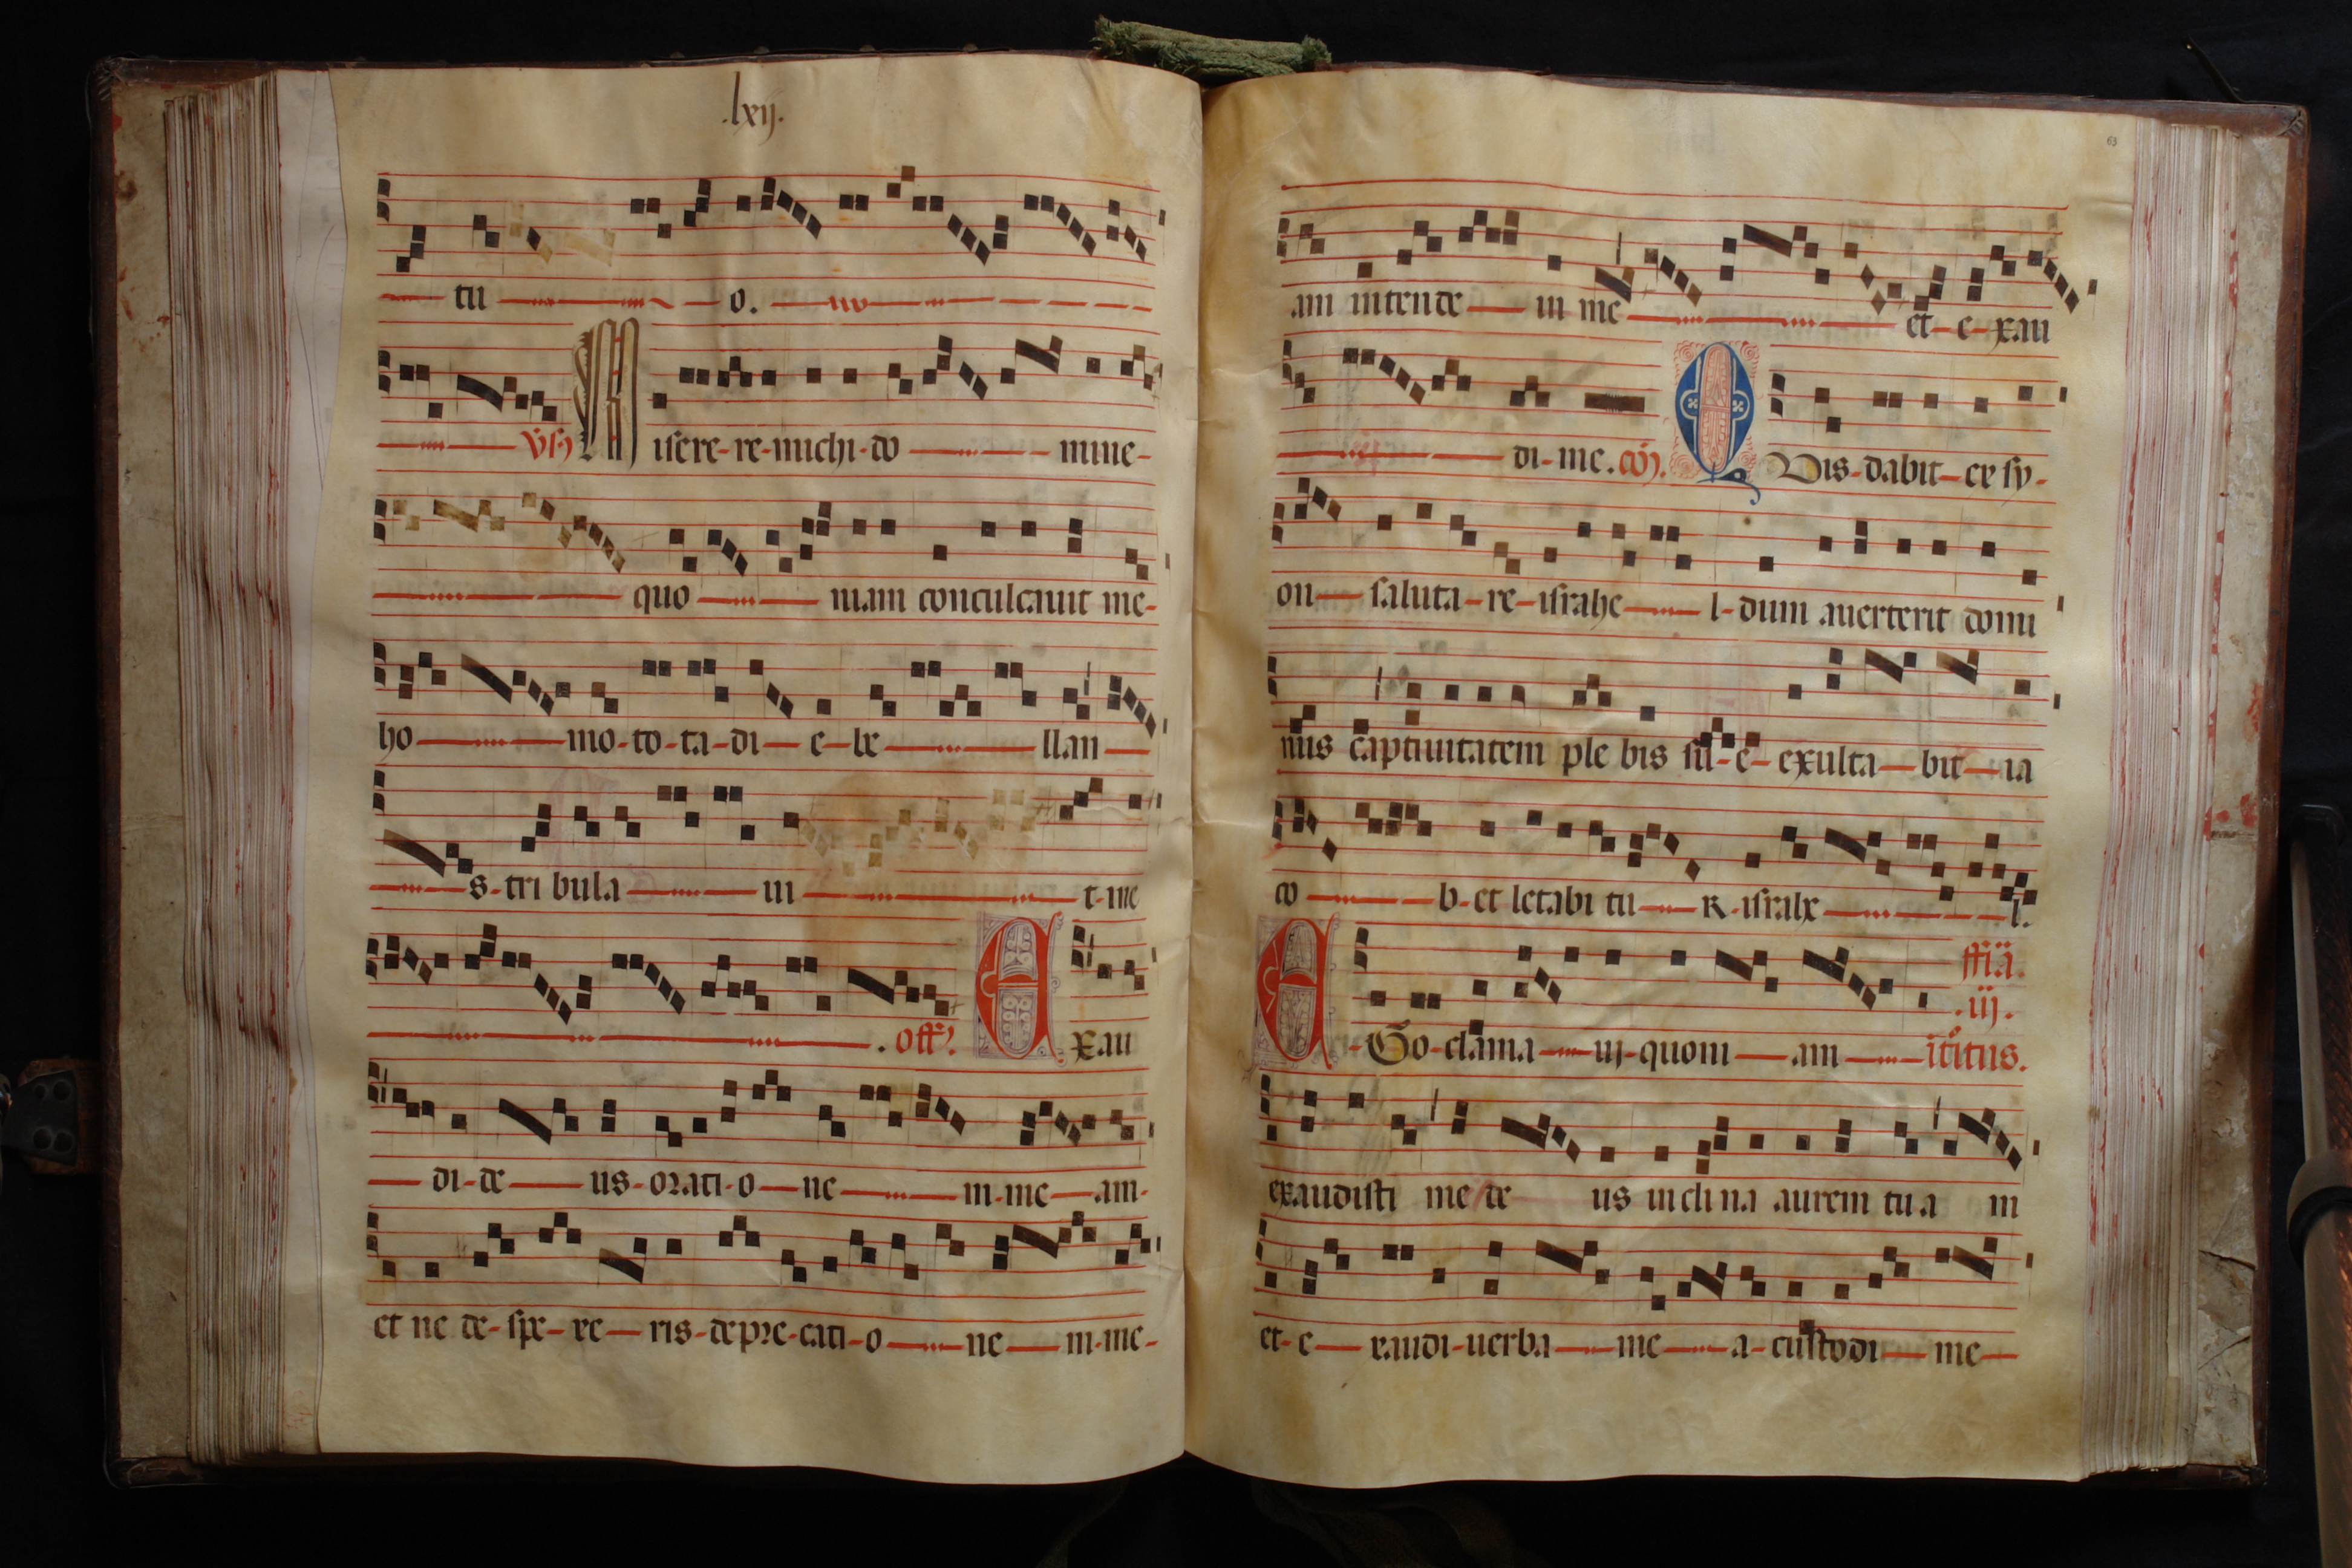 .lxij.
tu o.
v̄s Misere-re-michi-do mine-
quo niam conculcauit me-
ho mo-to-ta-di-e-be llan
s-tri bula ui t-me
. off. Exau
di-de us-orati-o-ne m-me-am-
et ne de-spe-re-ris-depre-cati-o-ne m-me-
63
am intende in me et-e-xau
di-me. Quis-dabit-ex sy-
on saluta-re-israhe l-dum auerterit domi
nus captiuitatem ple bis su-e-exulta-bit-ia
co b-et letabi tu-r-israhe l.
Ego-clama ui-quoni am
.iij.
exaudisti me de us inclina aurem tua m
et-e xaudi-uerba me a-custodi me